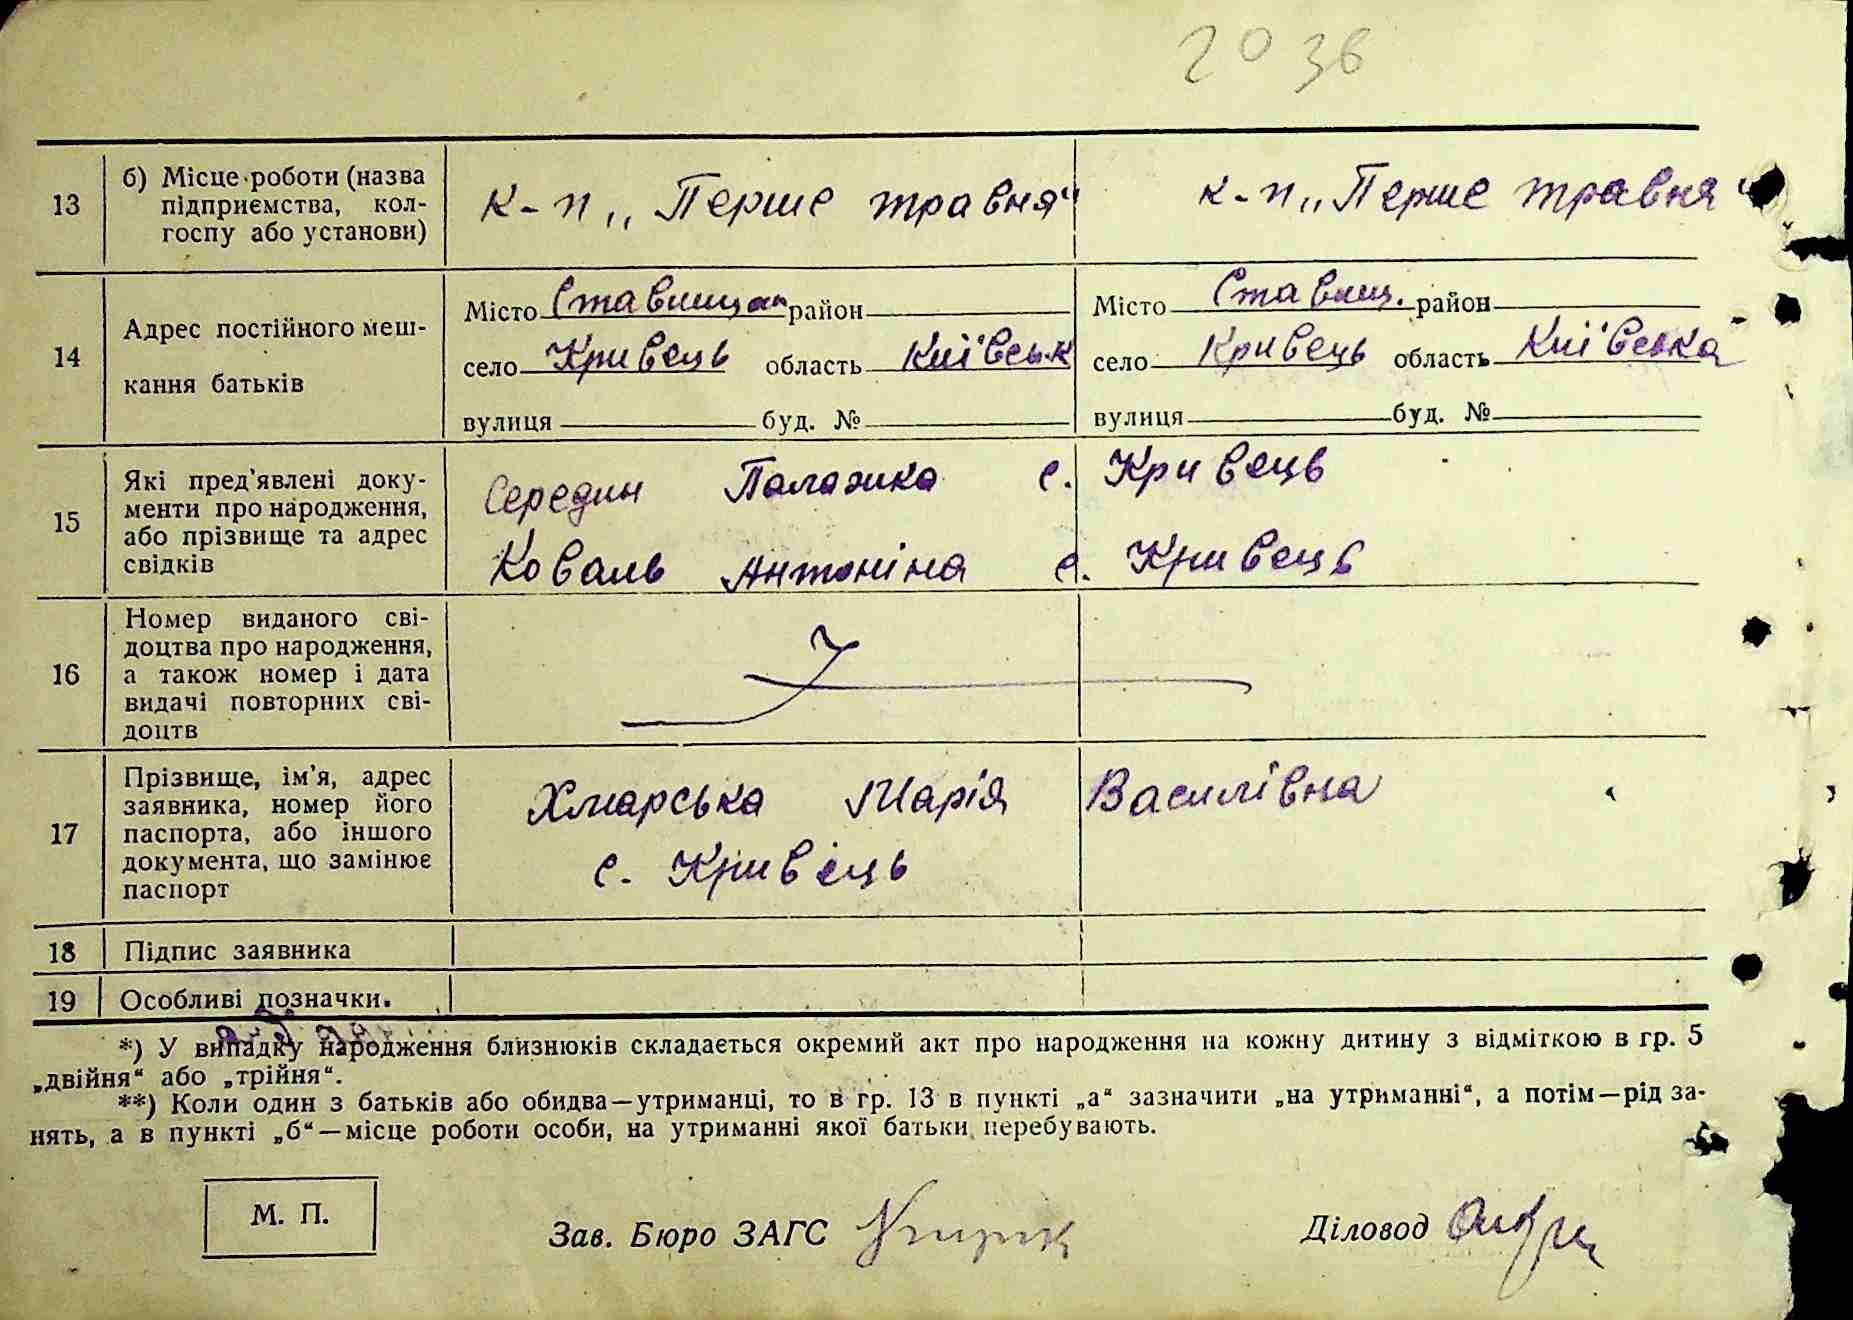 2036
13 б) Місце роботи (назва к-п „Перше травня“ к-п „Перше травня“
підприємства, кол-
госпу або установи)
Місто Ставищан район Місто Ставищ. район
14 Адрес постійного меш- село Кривець область Київськ село Кривець область Київська
кання батьків
вулиця буд. № вулиця буд. №
15 Які пред'явлені доку- Середин Палажка с. Кривець
менти про народження,
або прізвище та адрес Коваль Антоніна с. Кривець
свідків
16 Номер виданого сві-
доцтва про народження,
а також номер і дата
видачі повторних сві-
доцтв
17 Прізвище, ім'я, адрес Хмарська Марія Василівна
заявника, номер його
паспорта, або іншого с. Кривець
документа, що замінює
паспорт
18 Підпис заявника
19 Особливі позначки.
*) У випадку народження близнюків складається окремий акт про народження на кожну дитину з відміткою в гр. 5
„двійня“ або „трійня“.
**) Коли один з батьків або обидва—утриманці, то в гр. 13 в пункті „а“ зазначити „на утриманні“, а потім—рід за-
нять, а в пункті „б“—місце роботи особи, на утриманні якої батьки перебувають.
М. П.
Зав. Бюро ЗАГС Діловод